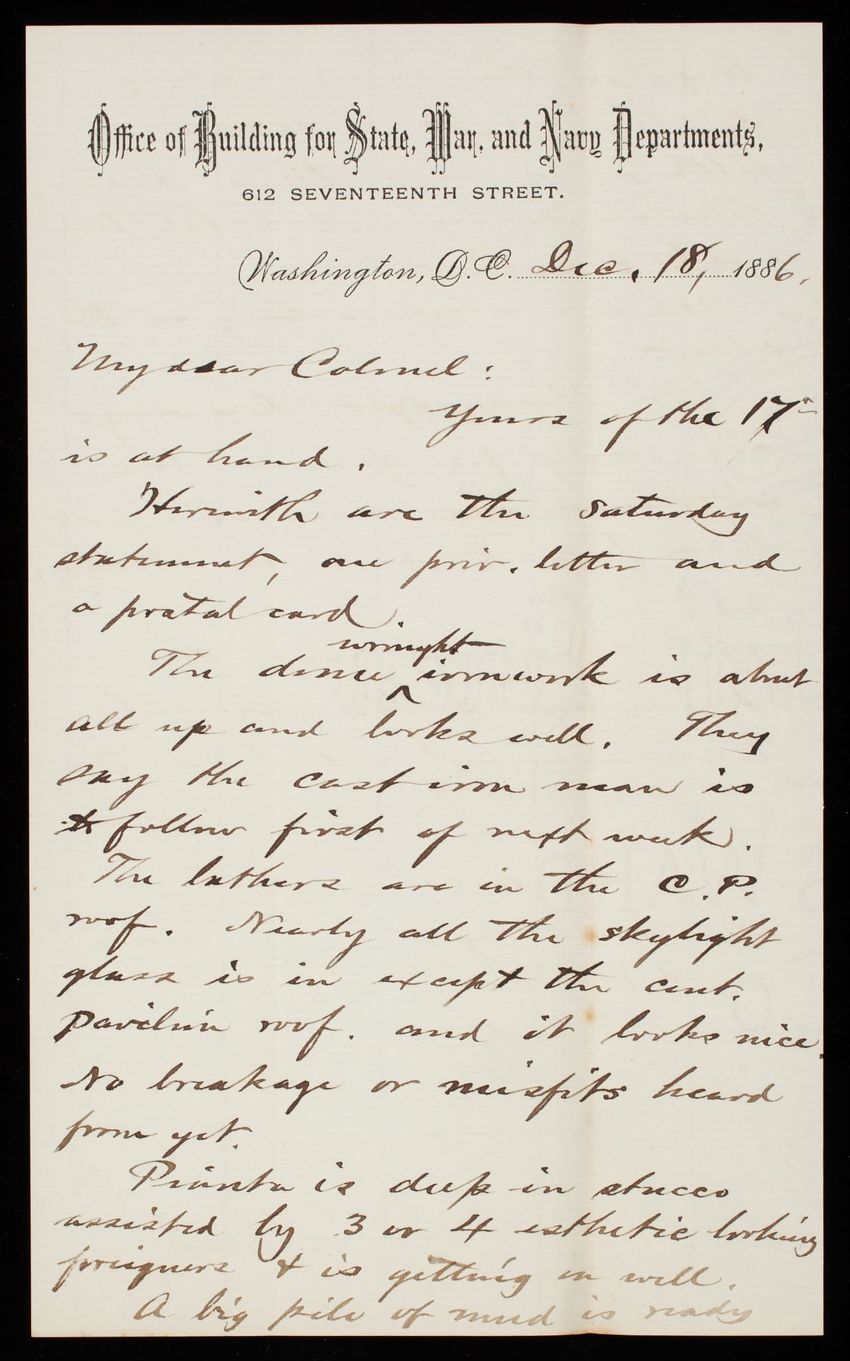 Office of Building for State, War, and Navy Departments,
612 SEVENTEENTH STREET.
Washington, D.C. Dec. 18, 1886.
My dear Colonel:
Yours of the 17th
is at hand.
Herewith are the Saturday
statement, one priv. letter and
a postal card
The dome wrought ironwork is about
all up and looks well. They
say the cast iron man is
to follow first of next week.
The lathers are in the C.P.
roof. Nearly all the skylight
glass is in except the cent.
pavilion roof. and it looks nice.
No breakage or misfits heard
from yet.
is deep in stucco
assisted by 3 or 4 esthetic looking
foreigners & is getting on well.
A big pile of mud is ready